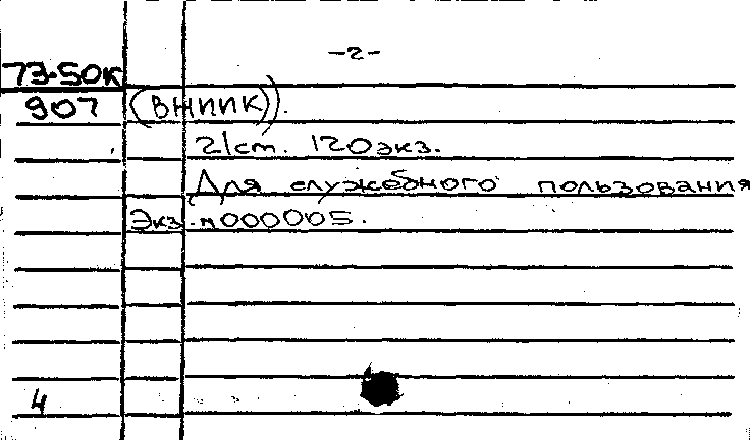 -2-
73-50К
907 (ВНИИК)).
21ст. 120экз.
Для служебного пользования
Экз.н000005.
4